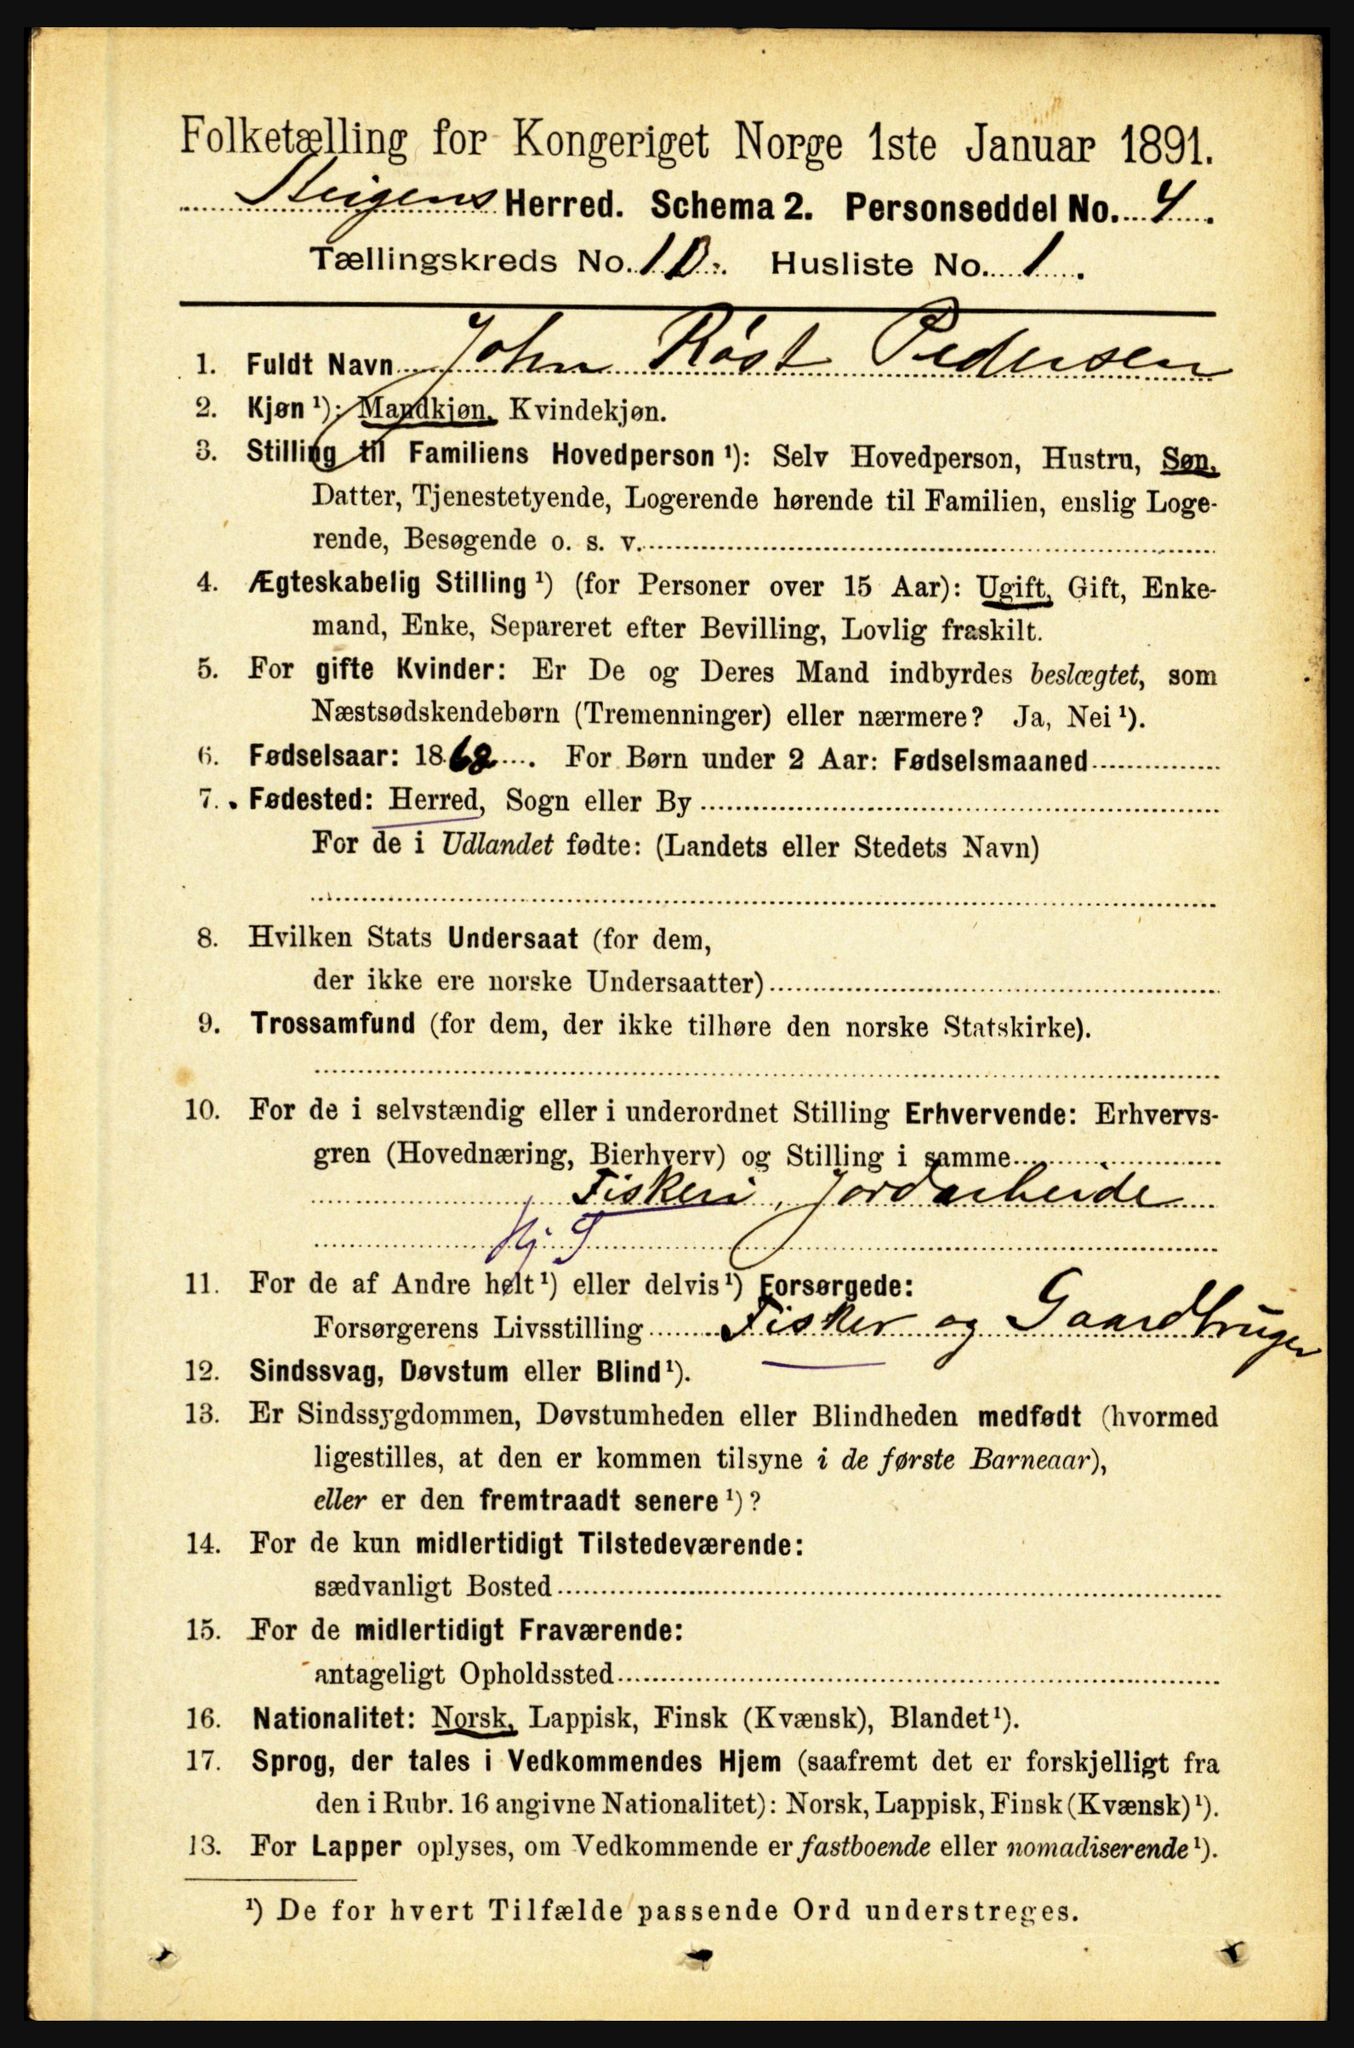 Folketælling for Kongeriget Norge 1ste Januar 1891.
Steigens Herred. Schema 2. Personseddel No. 4.
Tællingskreds No. 10. Husliste No. 1.
1. Fuldt Navn John Røst Pedersen
2. Kjøn ¹): Mandkjøn, Kvindekjøn.
3. Stilling til Familiens Hovedperson ¹): Selv Hovedperson, Hustru, Søn,
Datter, Tjenestetyende, Logerende hørende til Familien, enslig Loge-
rende, Besøgende o. s. v.
4. Ægteskabelig Stilling ¹) (for Personer over 15 Aar): Ugift, Gift, Enke-
mand, Enke, Separeret efter Bevilling, Lovlig fraskilt.
5. For gifte Kvinder: Er De og Deres Mand indbyrdes beslægtet, som
Næstsødskendebørn (Tremenninger) eller nærmere? Ja, Nei ¹).
6. Fødselsaar: 1868. For Børn under 2 Aar: Fødselsmaaned
7. Fødested: Herred, Sogn eller By
For de i Udlandet fødte: (Landets eller Stedets Navn)
8. Hvilken Stats Undersaat (for dem,
der ikke ere norske Undersaatter)
9. Trossamfund (for dem, der ikke tilhøre den norske Statskirke).
10. For de i selvstændig eller i underordnet Stilling Erhvervende: Erhvervs-
gren (Hovednæring, Bierhverv) og Stilling i samme
Fiskeri, Jordarbeide
11. For de af Andre helt ¹) eller delvis ¹) Forsørgede:
Forsørgerens Livsstilling Fisker og Gaardbruger
12. Sindssvag, Døvstum eller Blind ¹).
13. Er Sindssygdommen, Døvstumheden eller Blindheden medfødt (hvormed
ligestilles, at den er kommen tilsyne i de første Barneaar),
eller er den fremtraadt senere ¹)?
14. For de kun midlertidigt Tilstedeværende:
sædvanligt Bosted
15. For de midlertidigt Fraværende:
antageligt Opholdssted
16. Nationalitet: Norsk, Lappisk, Finsk (Kvænsk), Blandet ¹).
17. Sprog, der tales i Vedkommendes Hjem (saafremt det er forskjelligt fra
den i Rubr. 16 angivne Nationalitet): Norsk, Lappisk, Finsk (Kvænsk) ¹).
13. For Lapper oplyses, om Vedkommende er fastboende eller nomadiserende ¹).
¹) De for hvert Tilfælde passende Ord understreges.